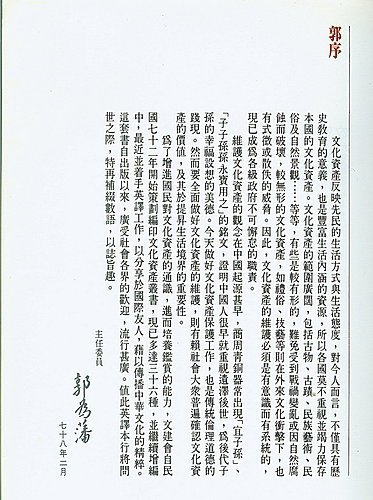 郭序
文化資產反映先民的生活方式與生活態度，對今人而言，不僅具有歷
史教育的意義，也是豐富生活內涵的資源，所以各國莫不重視並竭力保存
本國的文化資產。文化資產的範圍廣闊，包括古物、古蹟、民族藝術、民
俗及自然景觀……等等，有些是較有形的，難免受到戰禍變亂或因自然腐
蝕而破壞，較無形的文化資產，如禮俗、技藝等則在外來文化衝擊下，也
有式微或散佚的威脅。因此，文化資產的維護必須是有意識而有系統的，
現已成為各級政府不可懈怠的職責。
維護文化資產的觀念在中國起源甚早，商周青銅器常出現「宜子孫」、
「子子孫孫永寶用之」的銘文，證明中國人很早就重視遺澤後世、為後代子
孫的幸福設想的美德。今天做好文化資產保護工作，也是傳統倫理道德的
踐現。然而要全面做好文化資產的維護，則有賴社會大衆普遍確認文化資
產的價值，及其於提昇生活境界的重要性。
爲了增進國民對文化資產的通識，進而培養鑑賞的能力，文建會自民
國七十二年開始策劃編印文化資產叢書，現已多達三十六種，並繼續增編
中，最近並着手英譯工作，以分享於國際友人，藉以傳播中華文化的精粹。
這套書自出版以來，廣受社會各界的歡迎，故得行甚廣。值此英譯本行將問
世之際，特再補綴數語，以誌旨趣。
主任委員
郭為藩
七十八年二月